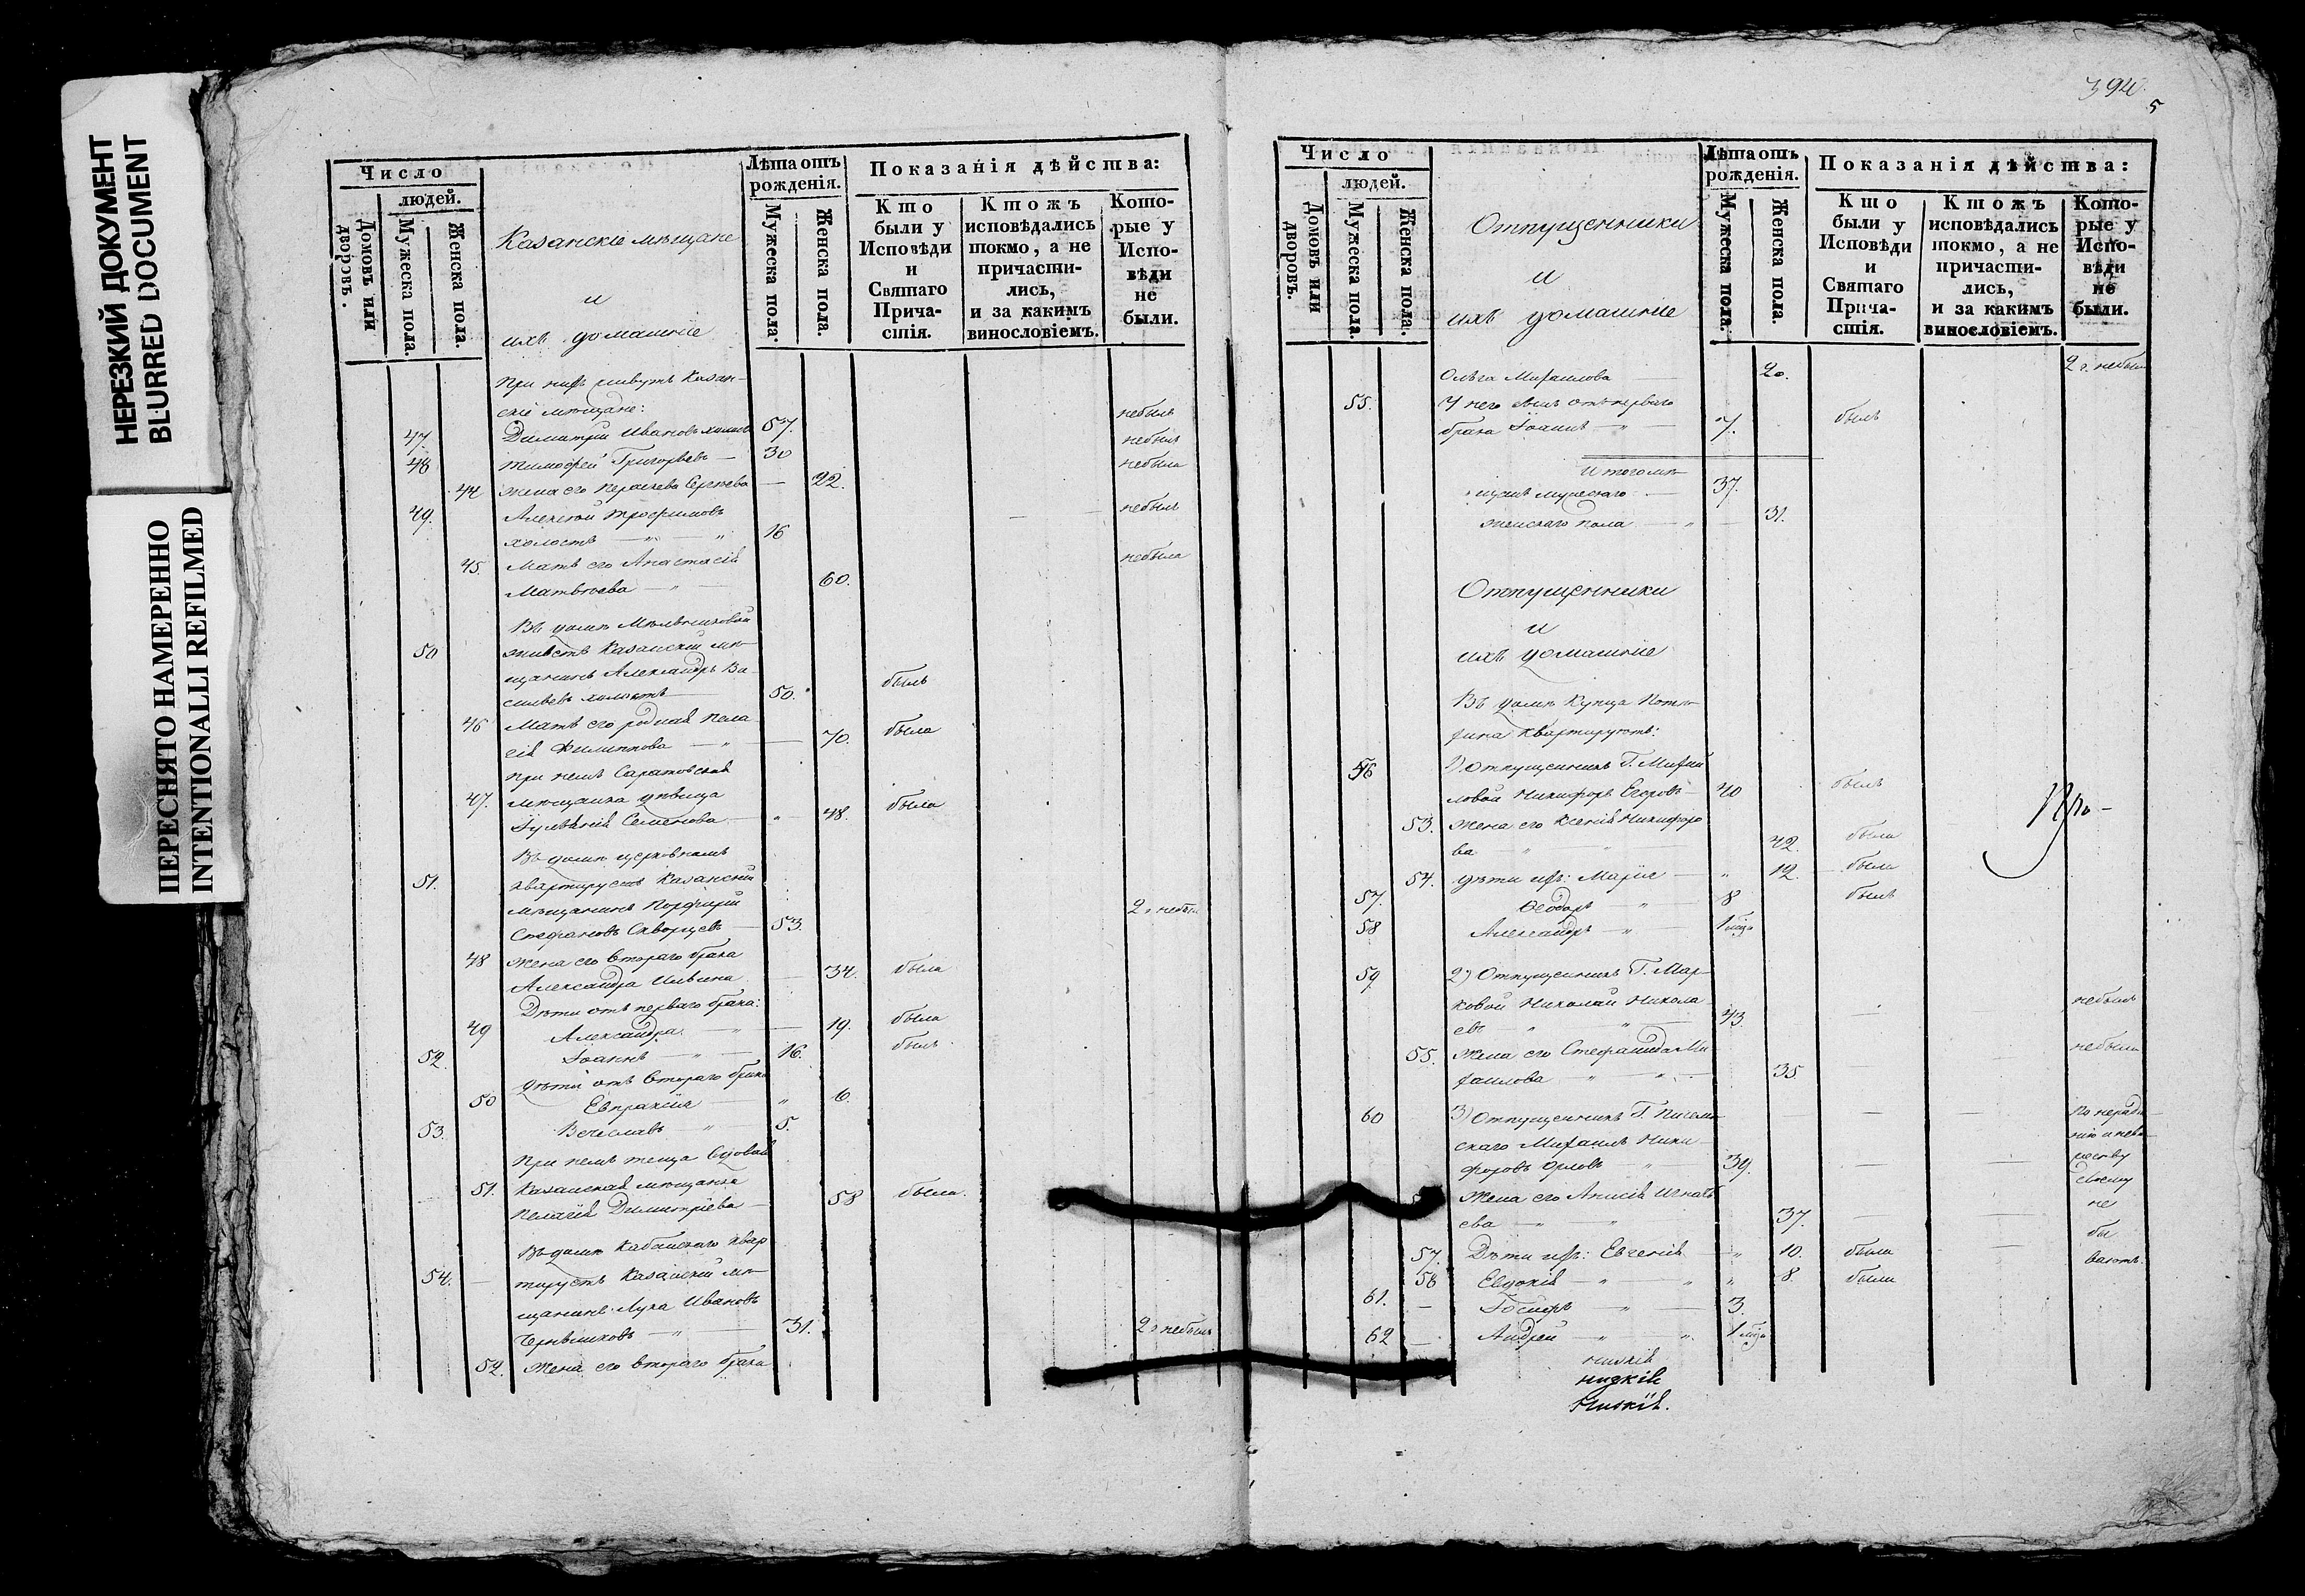 НЕРЕЗКИЙ ДОКУМЕНТ
BLURRED DOCUMENT
ПЕРЕСНЯТО НАМЕРЕННО
INTENTIONALLI REFILMED
Число
людей.
Домовъ или дворовъ.
Мужеска пола.
Женска пола.
Казанскіе мѣщане
и
ихъ домашніе
Лѣта отъ рожденія.
Мужеска пола.
Женска пола.
Показанія дѣйства:
Кто были у Исповѣди и Святаго Прича-стія.
Ктожъ исповѣдались токмо, а не причасти-лись, и за какимъ винословіемъ.
Кото-рые у Испо-вѣди не были.
При нихъ живутъ Казан-
скіе мѣщане:
47. Димитрій Ивановъ холостъ 57. небылъ
48 Тимофей Григорьевъ — 30 небылъ
44 Жена его Сергѣева — 22. небыла
49. Алексѣй Трофимовъ небылъ
холостъ — " — " 16
45. Мать его Анастасія небыла
Матвѣева — " — 60.
Въ домѣ Мельниковой
50 живетъ Казанскій мѣ-
щанинъ Александръ Ва-
сильевъ холостъ 50. былъ
46 Мать его родная Пела-
гія Филиппова — " — 70. была
При немъ Саратовская
47. мѣщанка дѣвица
Іуліанія Семенова — " 48. была
Въ домѣ церковномъ
51. квартируетъ Казанскій
мѣщанинъ Порфирій
Стефановъ Скворцовъ — 53. 2 г. небылъ
48 Жена его втораго брака
Александра Ильина — 34. была
Дѣти отъ перваго брака:
49 Александра — " — 19. была
52. Іоаннъ — " — 16. былъ
Дѣти отъ втораго брака
50 Евпраксія — " 6.
53. Вечеславъ — " — 5.
При немъ теща вдовая
51. Казанская мѣщанка
Пелагія Димитріева — 58 была.
Въ домѣ Кабанскаго квар
54. — тируетъ Казанскій мѣ-
щанинъ Лука Ивановъ
— " — 31. 2 г. небылъ
52. Жена его втораго брака
394
5
Число
людей.
Домовъ или дворовъ.
Мужеска пола.
Женска пола.
Отпущенники
и
ихъ домашніе
Лѣта отъ рожденія.
Мужеска пола.
Женска пола.
Показанія дѣйства:
Кто были у Исповѣди и Святаго Прича-стія.
Ктожъ исповѣдались токмо, а не причасти-лись, и за какимъ винословіемъ.
Кото-рые у Испо-вѣди не были.
Ольга Михаилова — 20. 2 г. небыла
55. У него сынъ отъ перваго
брака Іоаннъ — " — 7. былъ
Итого мѣ-
щанъ мужескаго — 37.
женскаго пола — " — 31.
Отпущенники
и
ихъ домашніе
Въ домѣ Купца Котѣ-
хина квартируютъ:
56 1) Отпущенникъ Г. Михай
ловой Никифоръ Егоровъ — 40 былъ
53. Жена его Ксенія Никифоро
ва — " — " — 42. была
54. Дѣти ихъ: Марія — " 12. была
57. Ѳеодоръ — " — 8 былъ
58 Александръ — " — 1 мѣс
Про-
59 2) Отпущенникъ Г. Мар-
ковой Николай Никола-
евъ — " — " — 43. небылъ
55. Жена его Стефанида Ми-
хаилова — " — " — 35 небыла
60 3) Отпущенникъ Г.
скаго Михаилъ Ники-
форовъ Орловъ — " — 39.
По неради-
нію
своему
не
бы
ваютъ.
Жена его Анисія Игнать
ева — " — " 37.
57. Дѣти ихъ: Евгенія — " 10. была
58 Евдокія — " — " " 8. была
61. — — " — 3.
62 — Андрей — " — " 1 мѣс